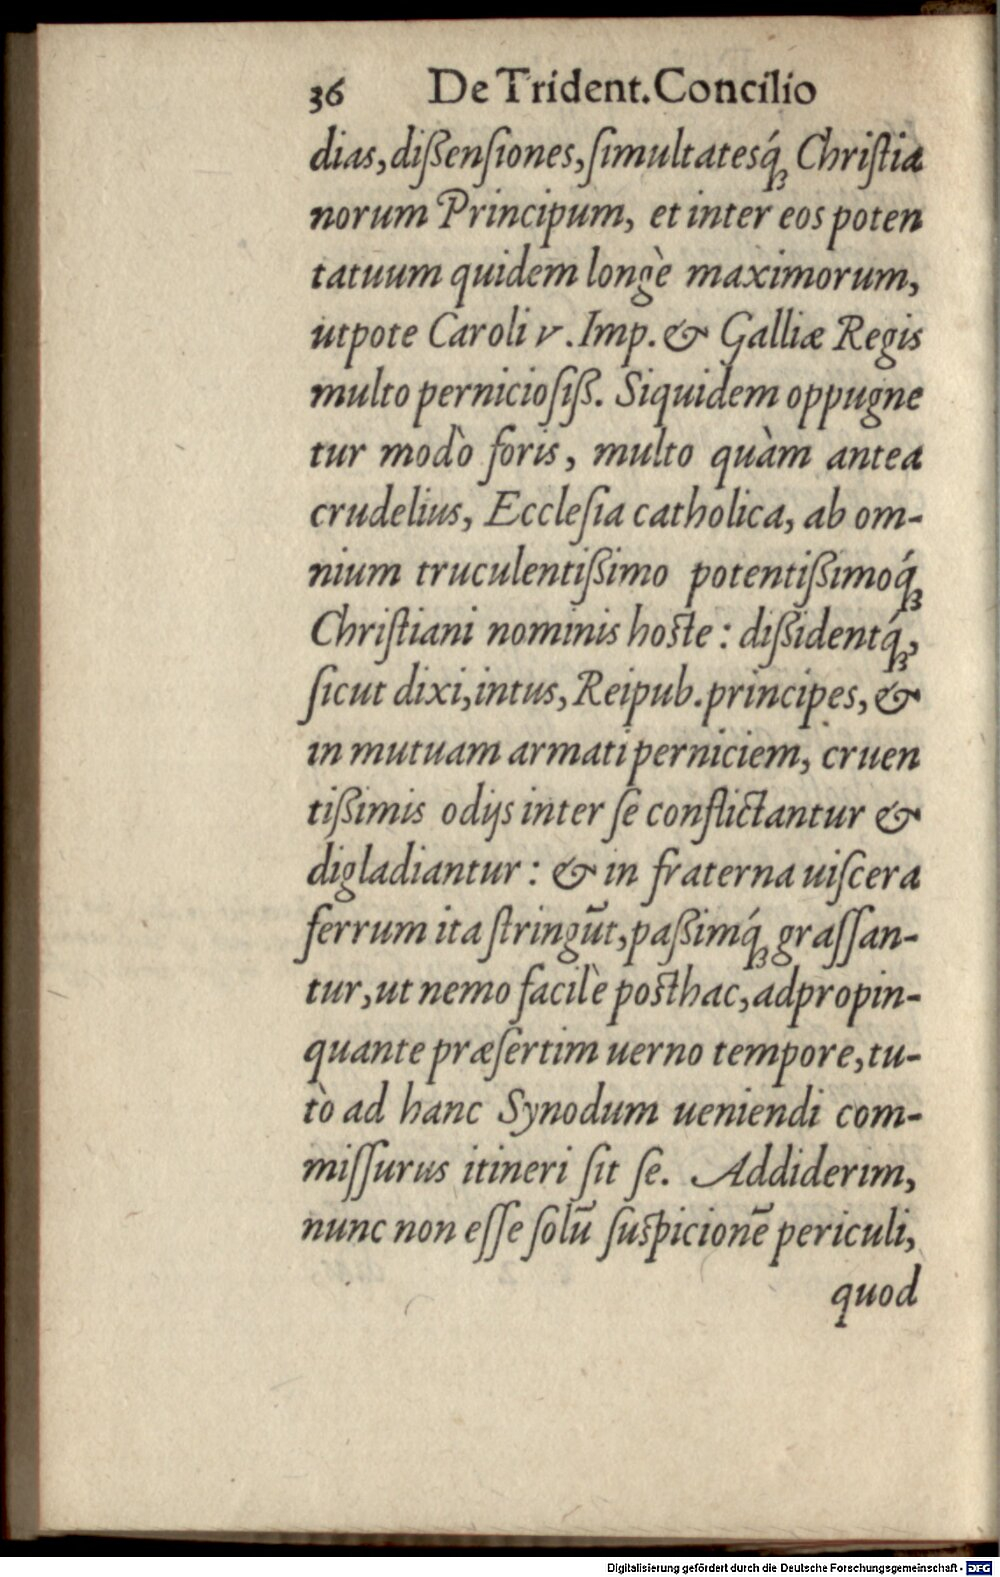 36 De Trident. Concilio
dias, dißensiones, ſimultatesq́; Chriſtia
norum Principum, et inter eos poten
tatuum quidem longè maximorum,
utpote Caroli v. Imp. & Galliæ Regis
multo pernicioſiß. Siquidem oppugne
tur modò foris, multo quàm antea
crudelius, Eccleſia catholica, ab om-
nium truculentißimo potentißimoq́;
Chriſtiani nominis hoſte: dißidentq́;,
ſicut dixi, intus, Reipub. principes, &
in mutuam armati perniciem, cruen
tißimis odijs inter ſe conflictantur &
digladiantur: & in fraterna uiſcera
ferrum ita ſtringũt, paßimq́; graſſan-
tur, ut nemo facilè poſthac, adpropin-
quante præſertim uerno tempore, tu-
tò ad hanc Synodum ueniendi com-
miſſurus itineri ſit ſe. Addiderim,
nunc non eſſe ſolũ ſuſpicionẽ periculi,
quod
Digitalisierung gefördert durch die Deutsche Forschungsgemeinschaft - DFG